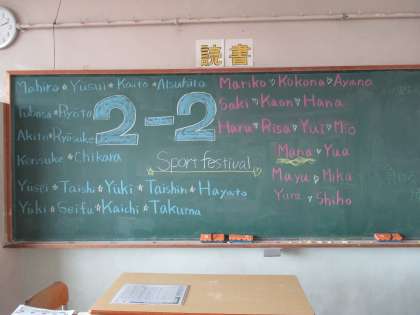 読書
Mahiro Yusui Kaito Atsuhito
Tubasa Ryoto
Akito Ryosuke
Kensuke Chikara
2-2
Sport festival
Yusei Taishi Yuki Taishin Hayato
Yuki Seifu Kaichi Takuma
Mariko Kokona Ayana
Saki Kaon Hana
Haru Risa Yui Mio
Mana Yua
Mayu Mika
Yura Shiho